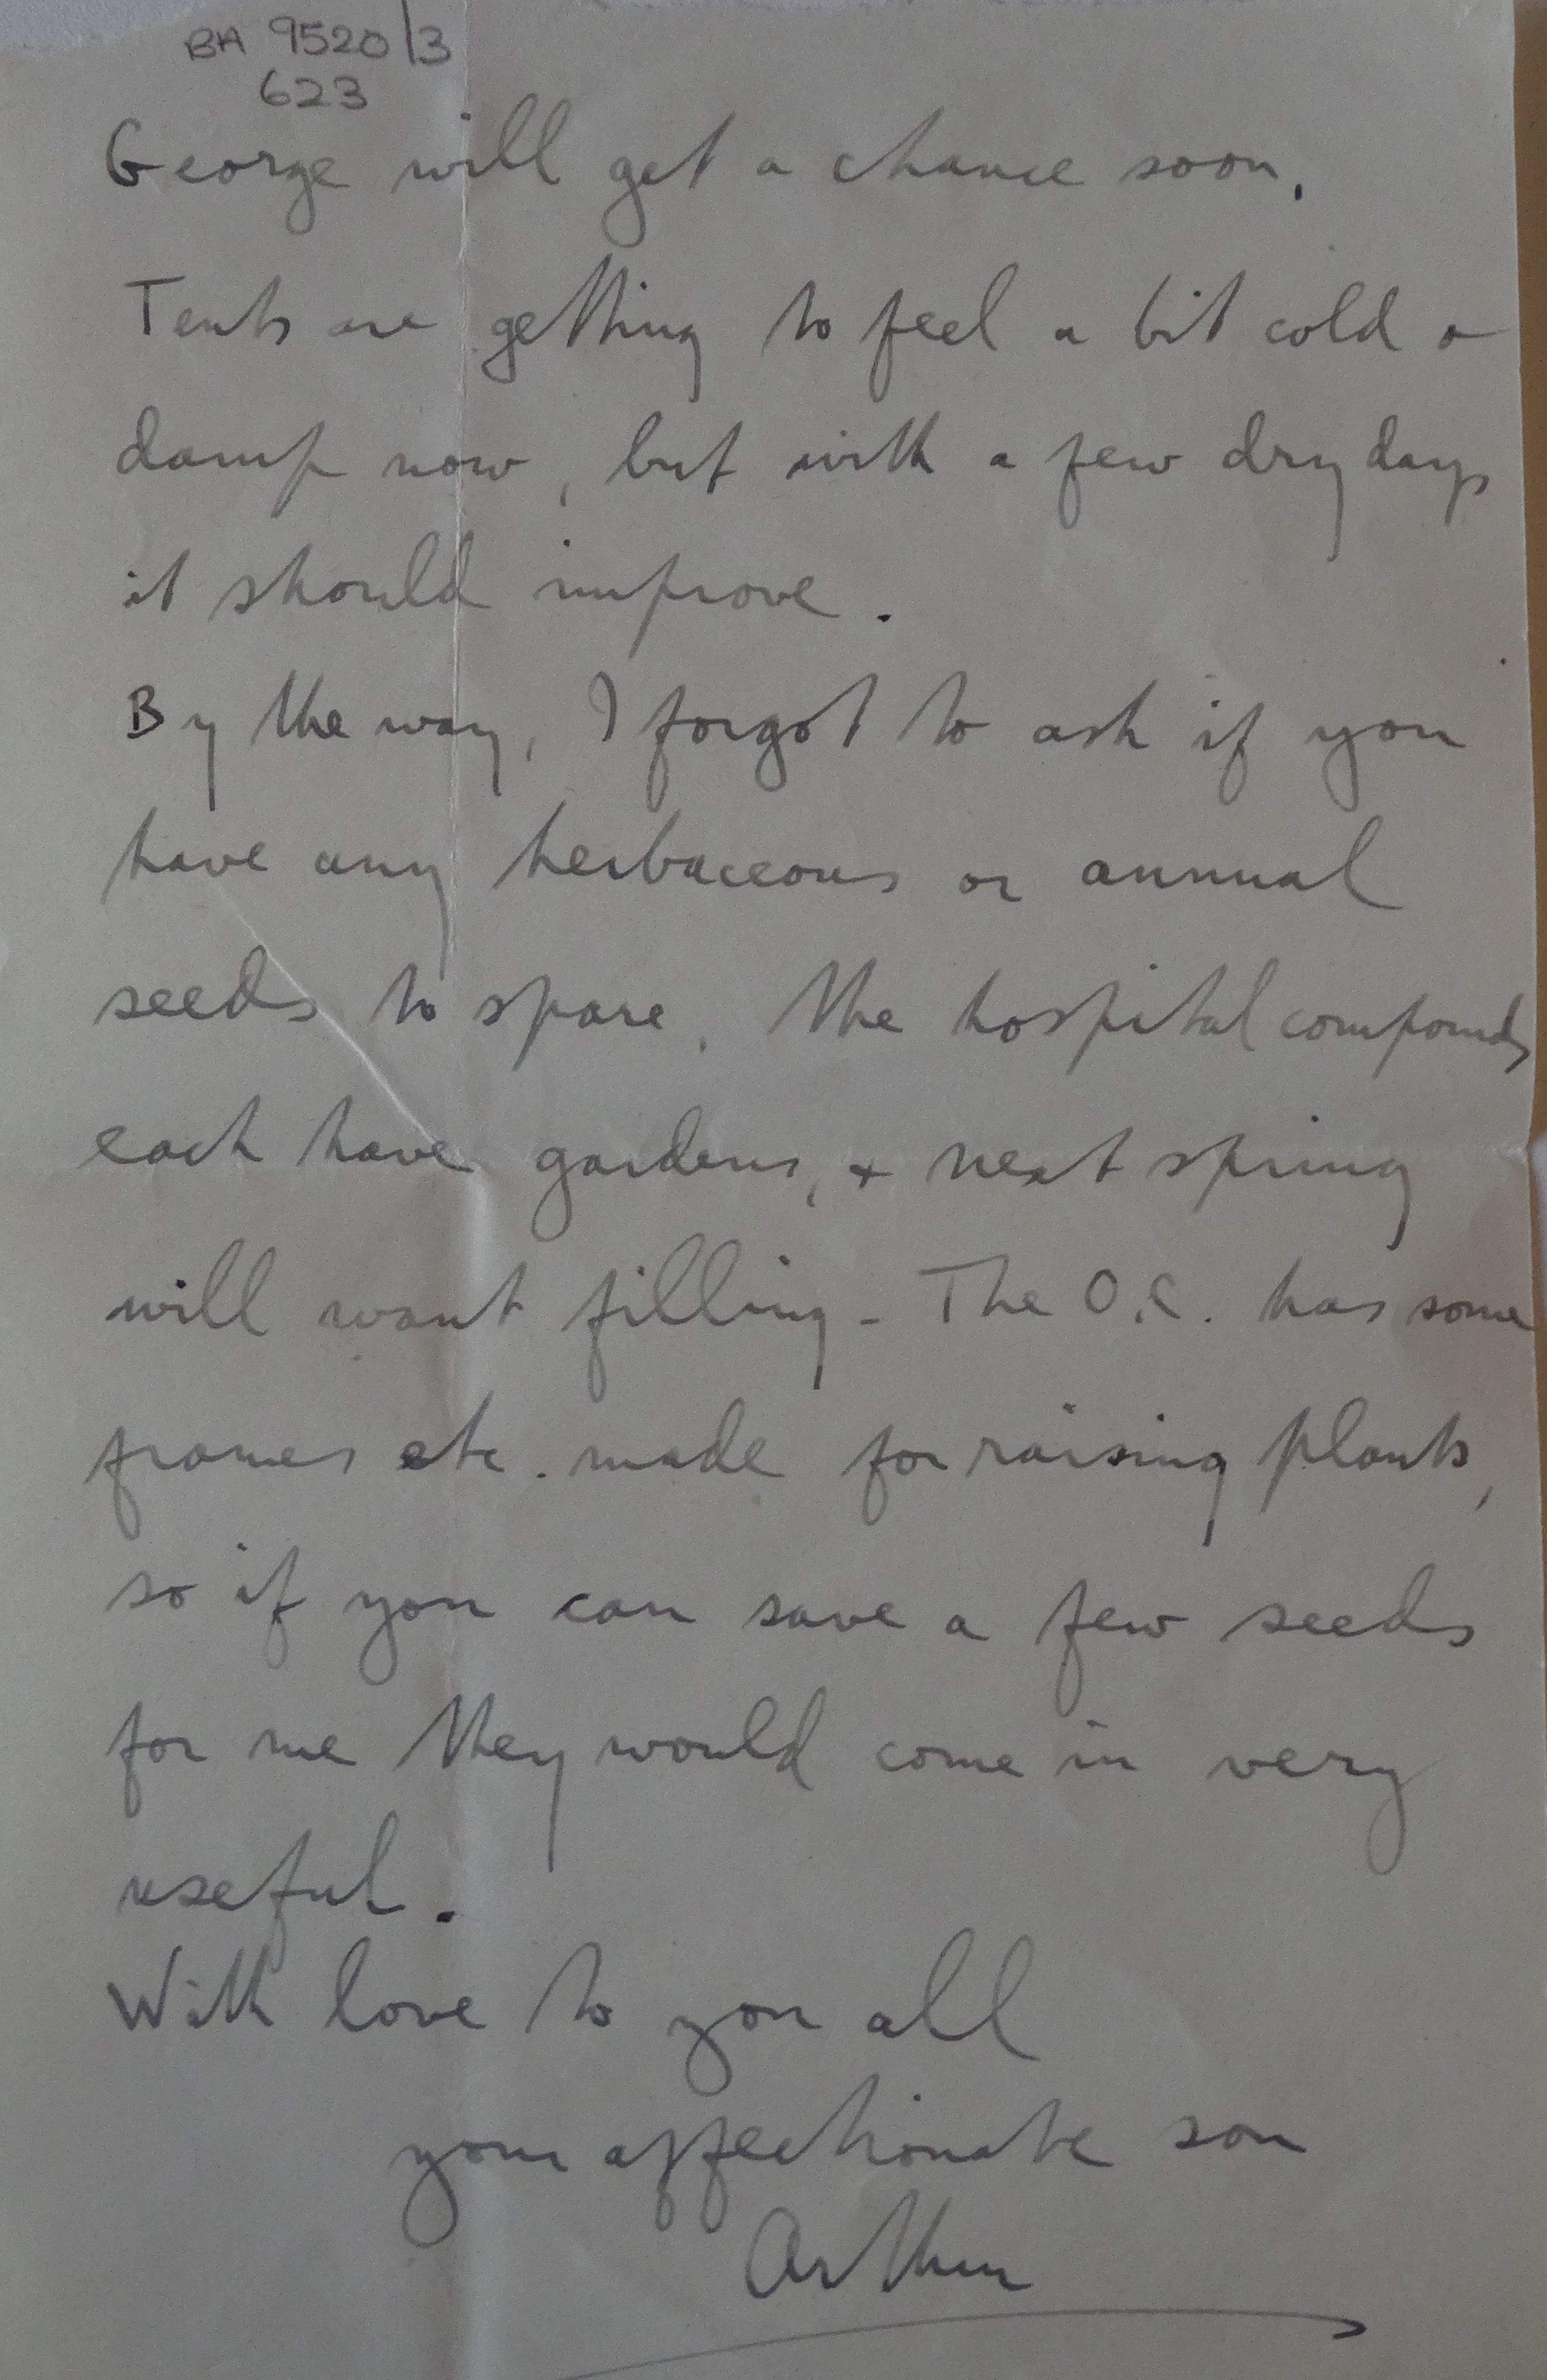 BA 9520/3
623
George will get a chance soon.
Tents are getting to feel a bit cold &
damp now, but with a few dry days
it should improve.
By the way, I forgot to ask if you
have any herbaceous or annual
seeds to spare. The hospital compounds
each have gardens, & next spring
will want filling - The O.C. has some
frames etc. made for raising plants,
so if you can save a few seeds
for me they would come in very
useful.
With love to you all
your affectionate son
Arthur